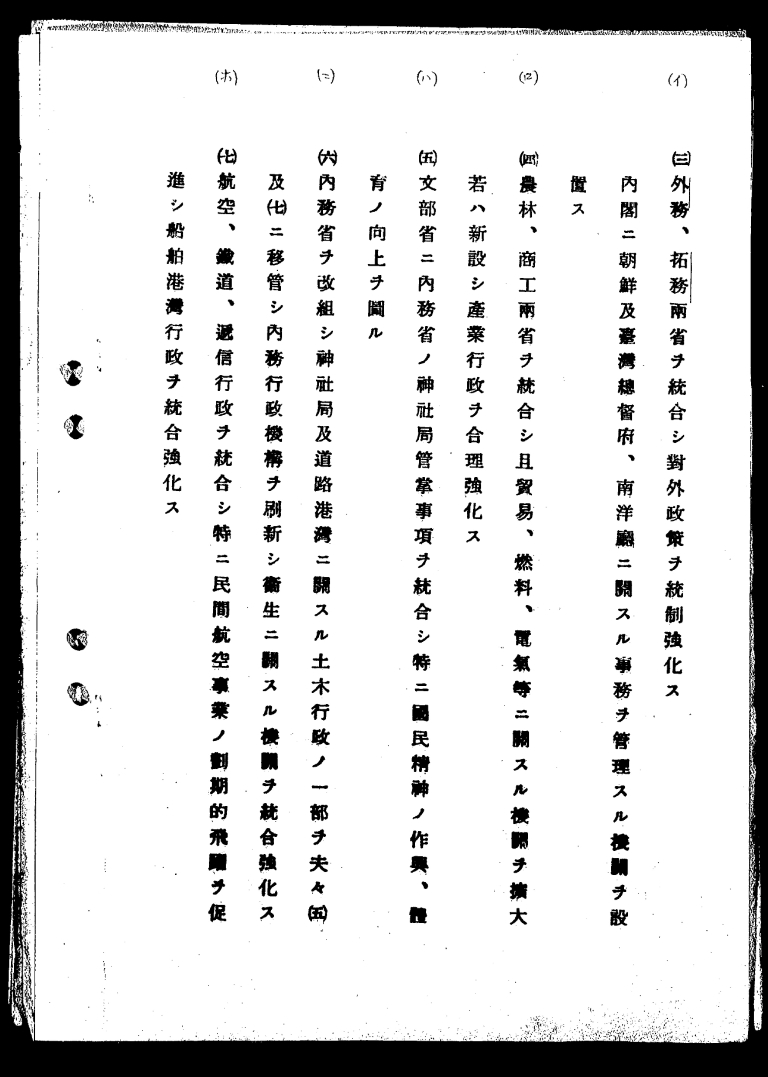 (イ)
㈢外務、拓務兩省ヲ統合シ對外政策ヲ統制強化ス
內閣ニ朝鮮及臺灣總督府、南洋廳ニ關スル事務ヲ管理スル機關ヲ設
置ス
(ロ)
㈣農林、商工兩省ヲ統合シ且貿易、燃料、電氣等ニ關スル機關ヲ擴大
若ハ新設シ產業行政ヲ合理強化ス
(ハ)
㈤文部省ニ內務省ノ神社局管掌事項ヲ統合シ特ニ國民精神ノ作興、體
育ノ向上ヲ圖ル
(ニ)
㈥內務省ヲ改組シ神社局及道路港灣ニ關スル土木行政ノ一部ヲ夫々㈤
及㈦ニ移管シ內務行政機構ヲ刷新シ衞生ニ關スル機關ヲ統合強化ス
(ホ)
㈦航空、鐵道、遞信行政ヲ統合シ特ニ民間航空事業ノ劃期的飛躍ヲ促
進シ船舶港灣行政ヲ統合強化ス